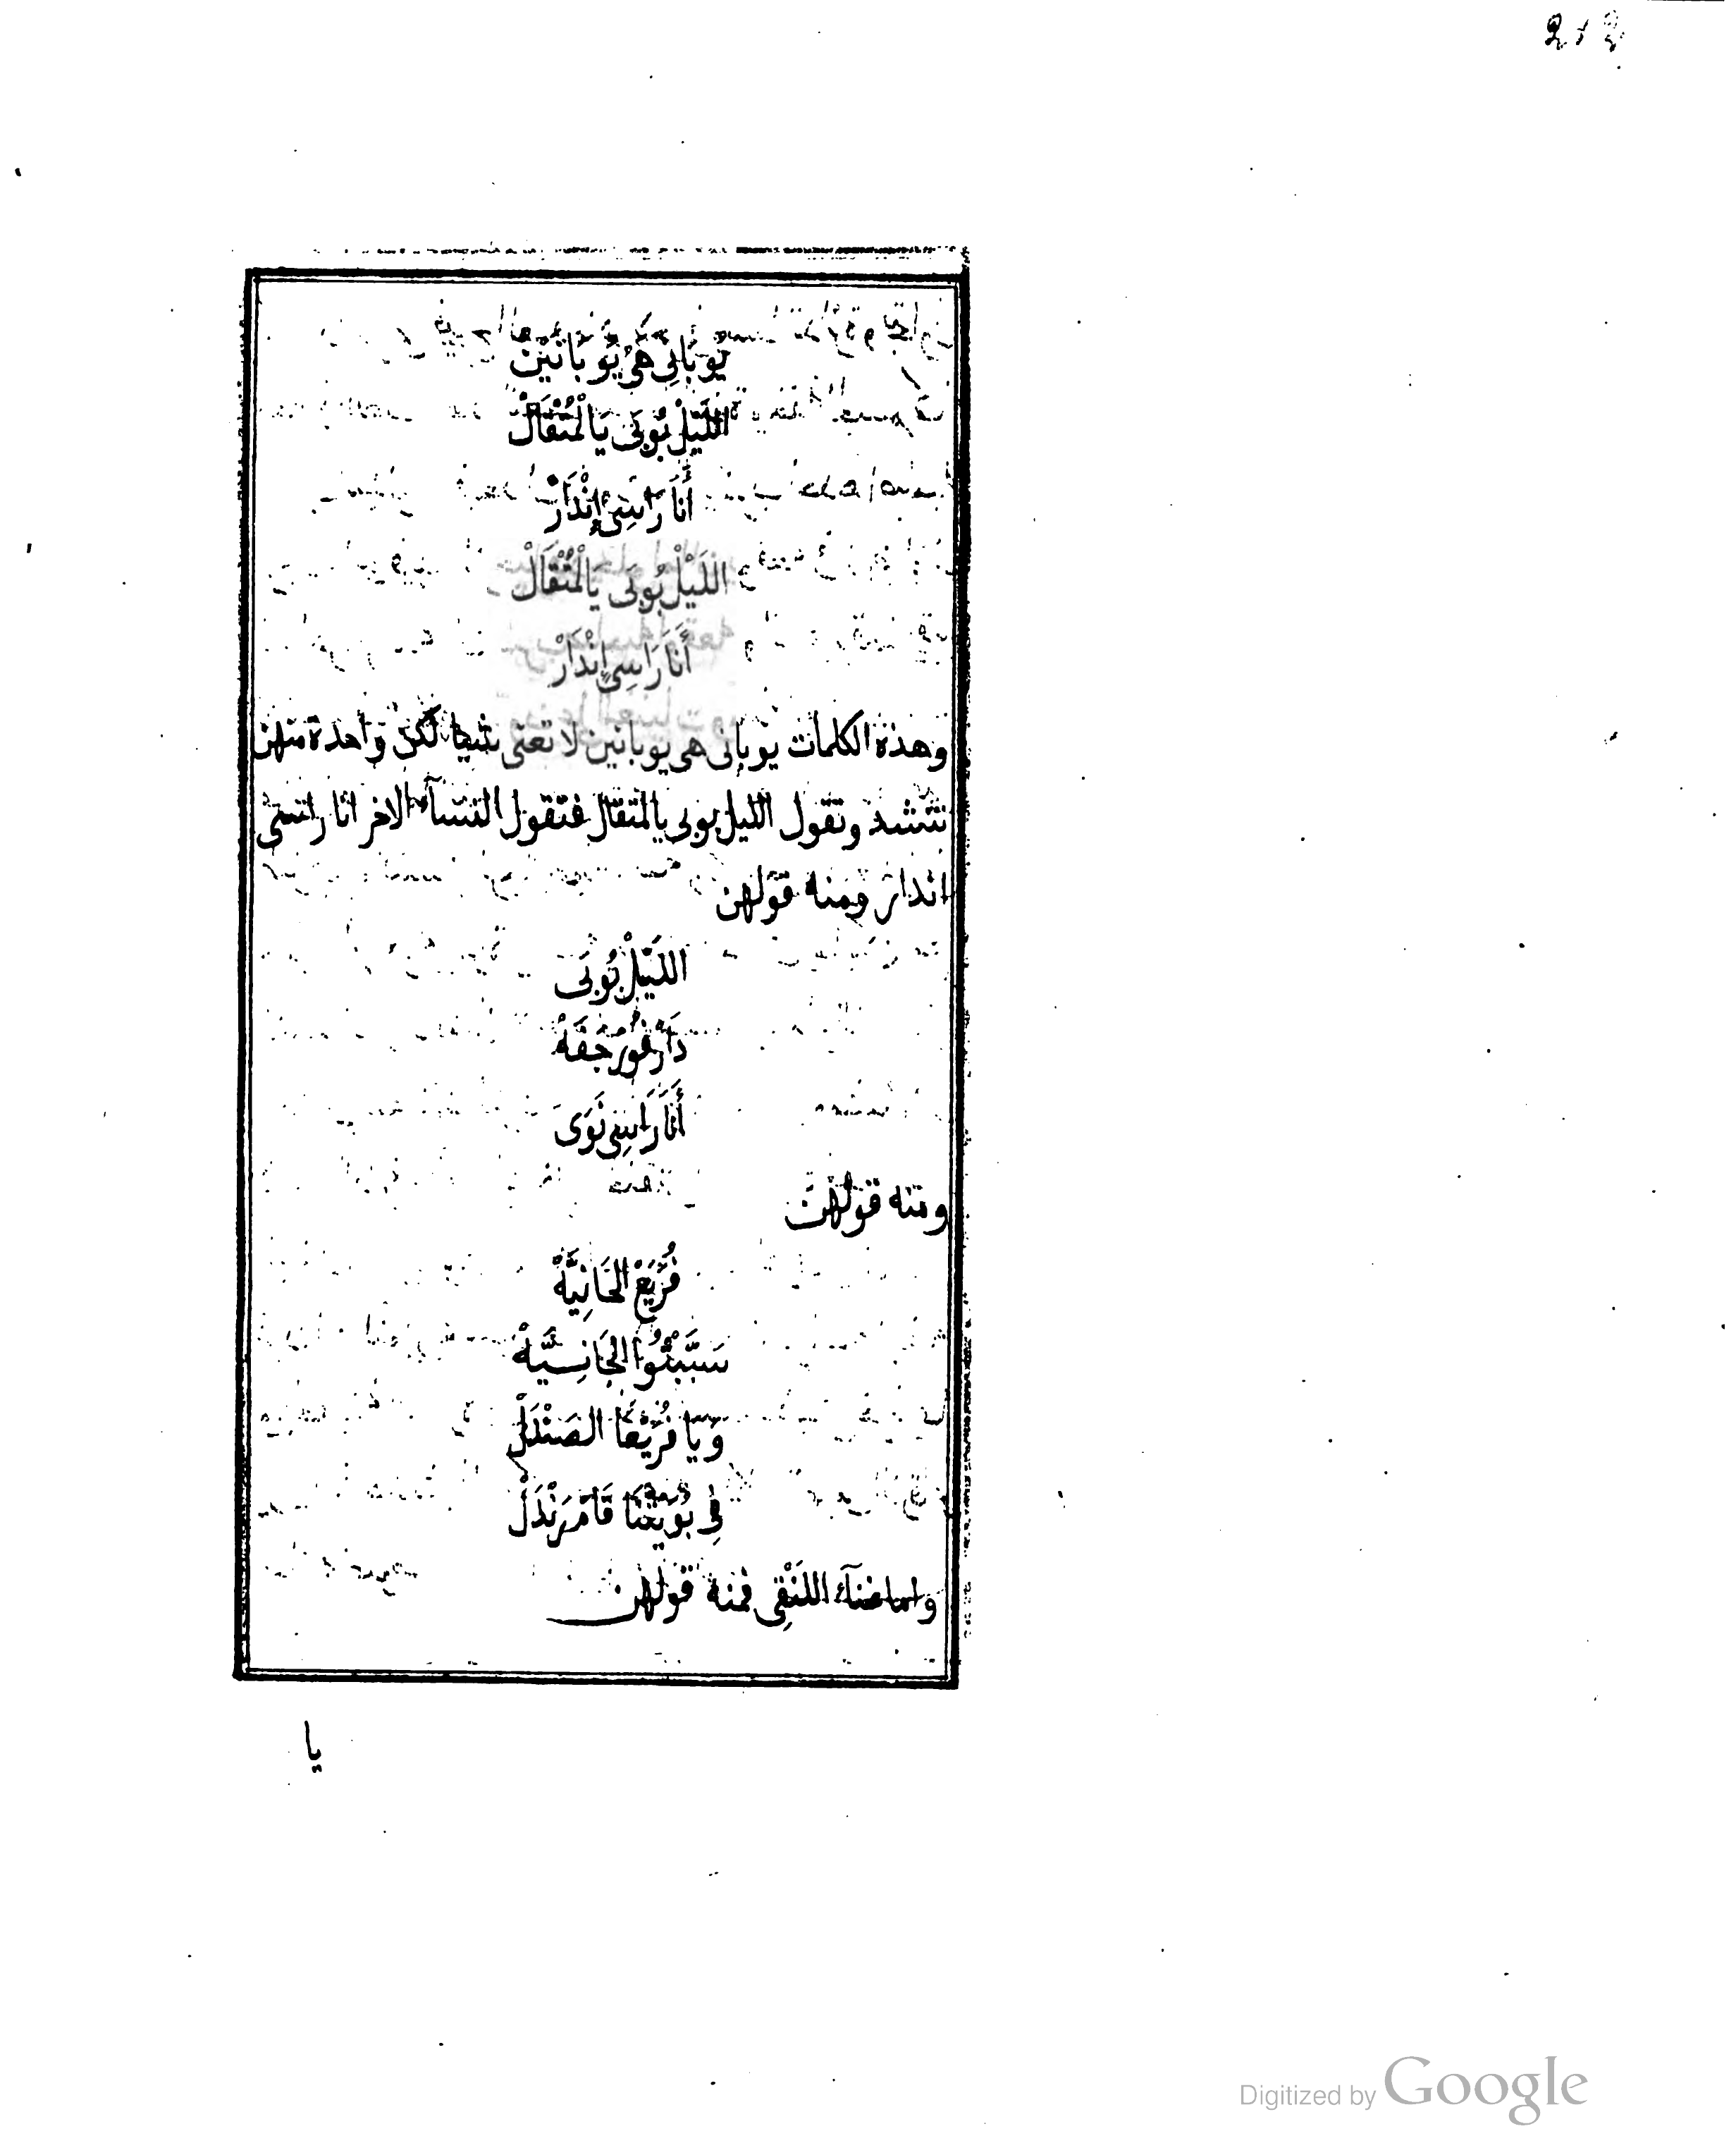 212
يُوبَانِي هَىْ يُوبَانِيْنْ
اللَّيْلْ بُوبَى يَالْمُتْقَالْ
أَنَا رَاسِي إِنْدَارْ
اللَّيْلْ بُوبَى يَالْمُتْقَالْ
أَنَا رَاسِي إِنْدَارْ
وهذه الكلمات يوبانى هى يوبانين لا تعنى شيا لكن واحدة منهن
تنشد وتقول الليل بوبى يالمتقال فتقول النسآء الاخر انا راسى
اندار ومنه قولهن
اللَّيْلْ بُوبَى
دَارْفُورْ جَفَهْ
أَنَا رَاسِي نَوَى
ومنه قولهن
فُرَيْعْ الحَانِيَّهْ
سَبَّبْتُوا الجَانِسِيَّهْ
وَيَا فُرَيْعًا الصَنْدَلْ
فِي بُوَيْتْنَا قَامْ رَنْدَلْ
واما غنآء اللنقى فمنه قولهن
يا
Digitized by Google